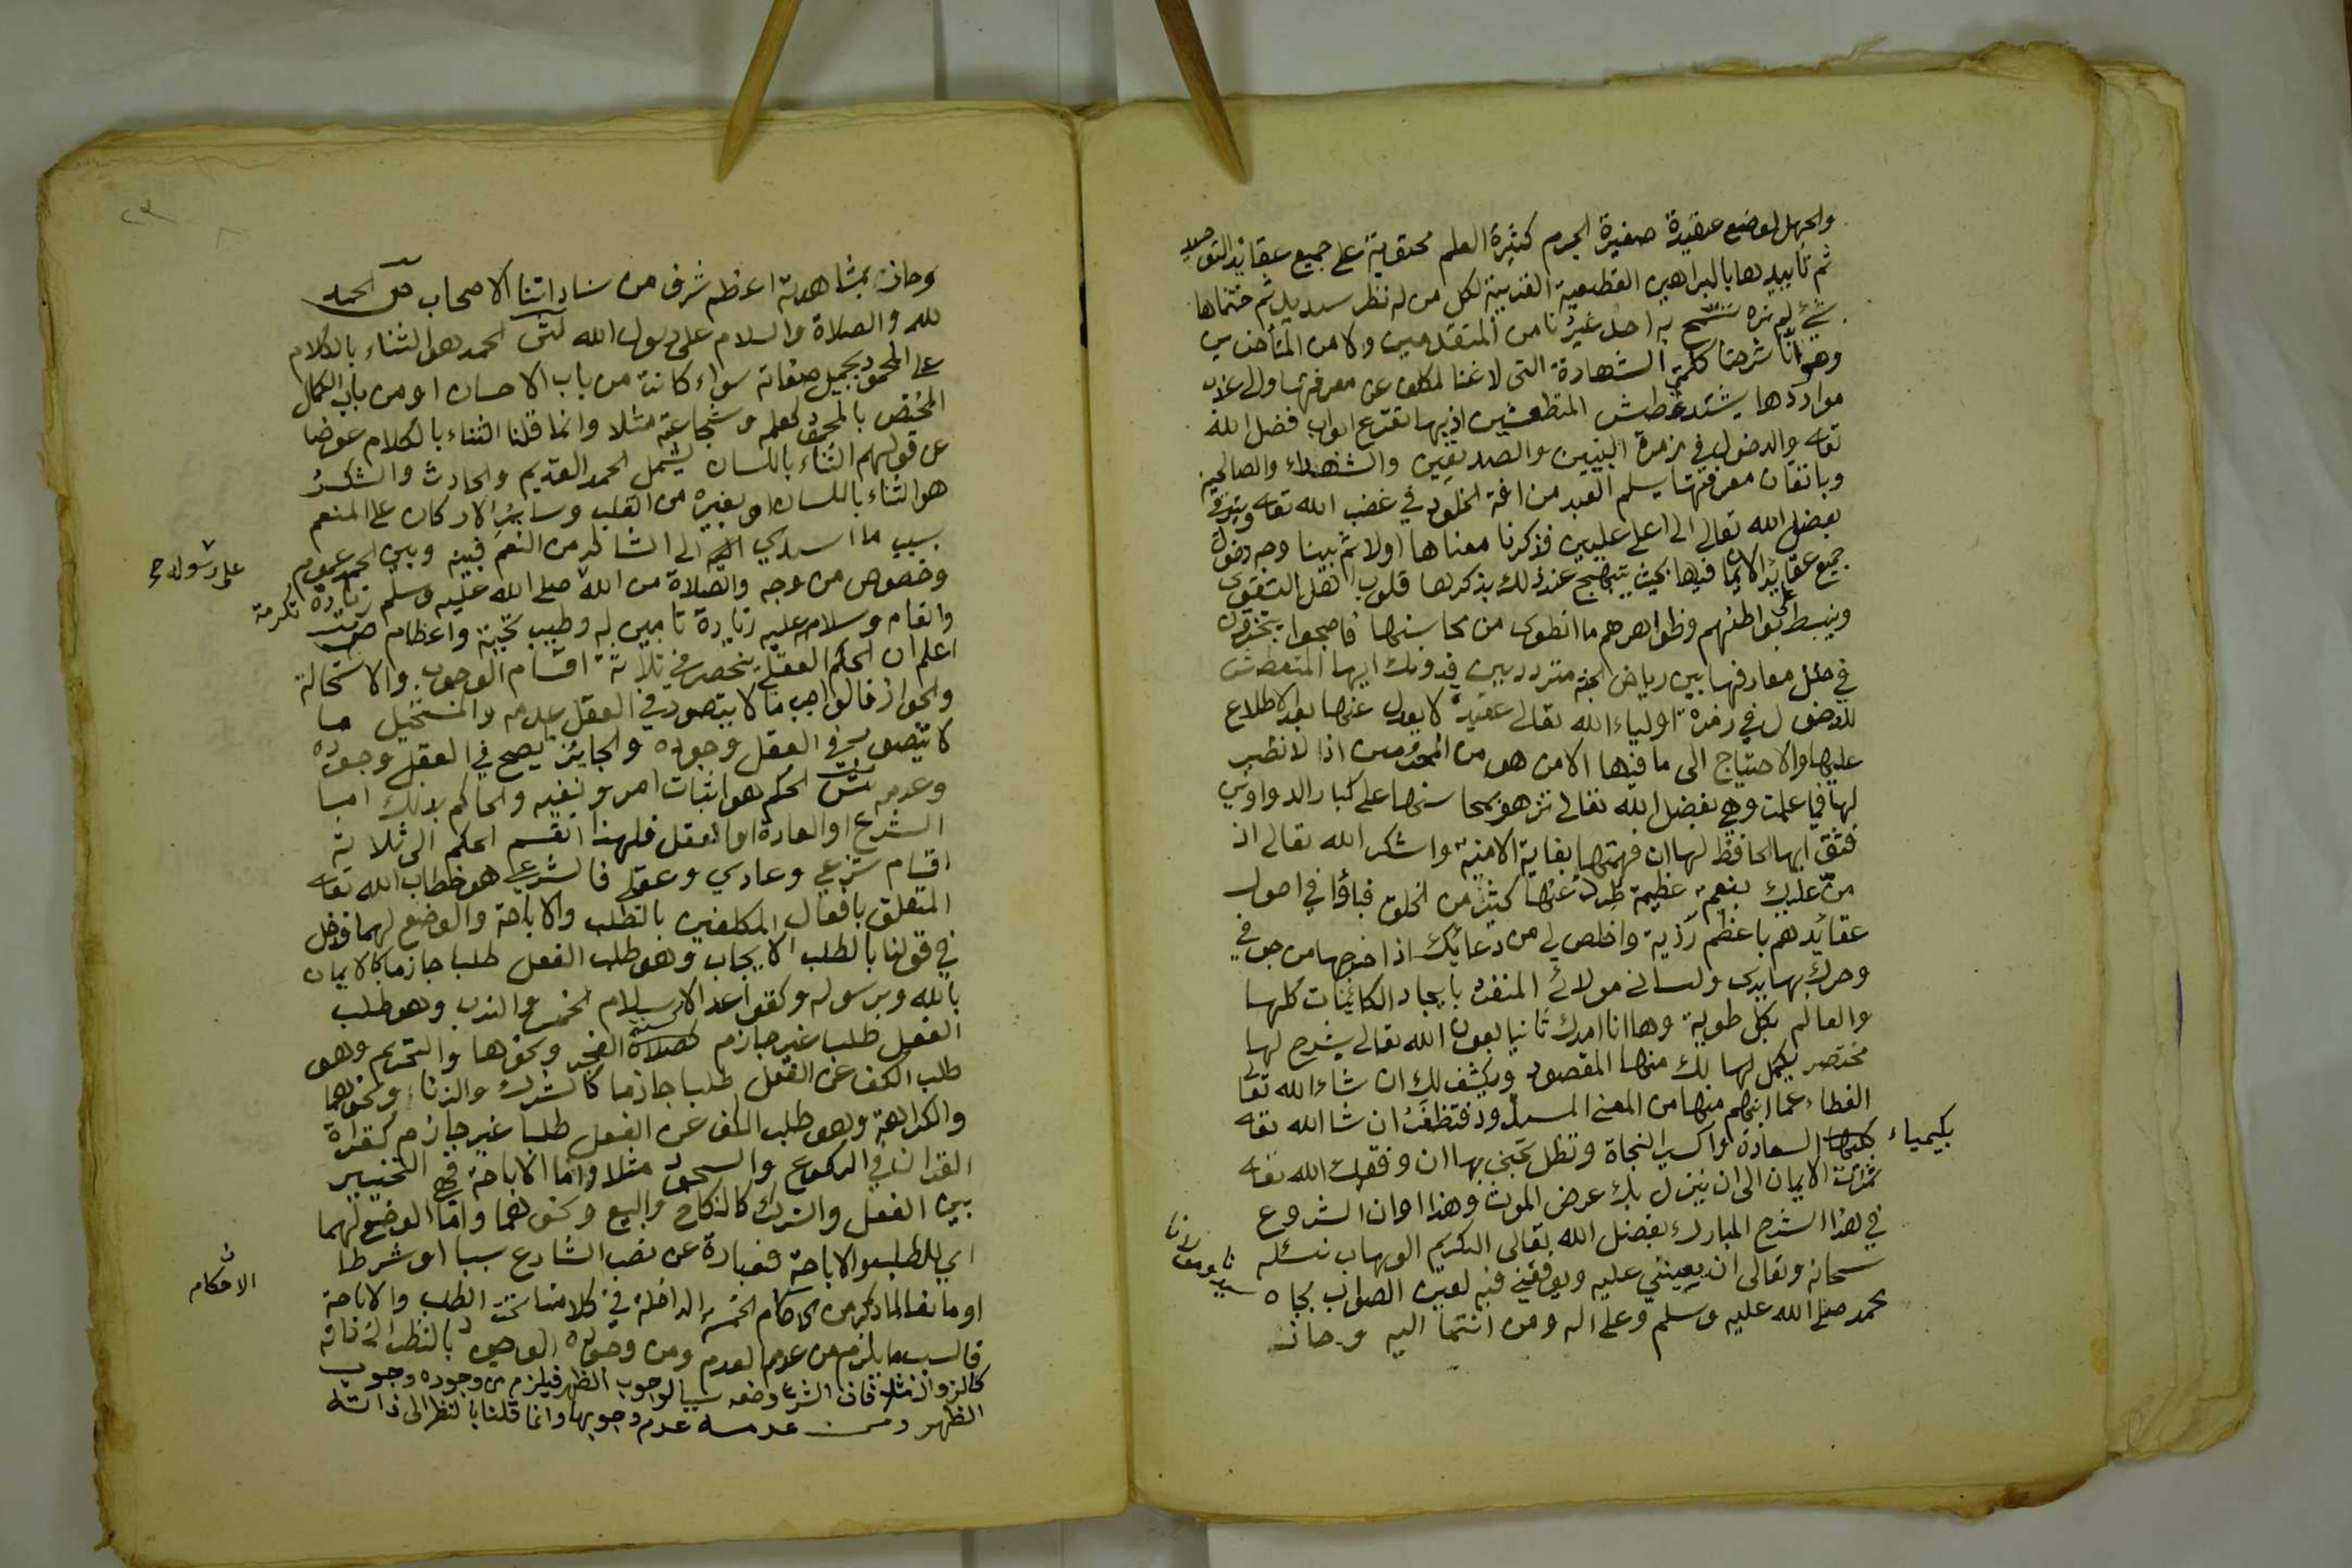 والجهل لوضع عقيدة صغيرة الجرم كثيرة العلم محتوية على جميع عقائد التوحيد
ثم تأييدها بالبراهين القطعية القريبة لكل من له نظر سديد ثم ختمناها
بشئ لم نره سمح به احد غيرنا من المتقدمين ولا من المتأخرين
وهو انا شرحنا كلمتي الشهادة التى لا غنا لمكلف عن معرفتها والى عذب
مواردها يشتد عطش المتطعشين اذ بها تقترع ابواب فضل الله
تعالى والدخول في زمرة النبيين والصديقين والشهداء والصالحين
وباتقان معرفتها يسلم العبد من افة الخلود في غضب الله تعالى ويترقى
بفضل الله تعالى الى اعلى عليين فذكرنا معناها اولا ثم بينا وجه دخول
جميع عقائد الايمان فيها بحيث يتبهج عند ذلك بذكرها قلوب اهل التقوى
وينبسط على بواطنهم وظواهرهم ما انطوى من محاسنها فاصبحوا يتبخترون
في حلل معارفها بين رياض الجنة مترددين فدونك ايها المتعطش
للدخول في زمرة اولياء الله تعالى عقيدة لا يعدل عنها بعد الاطلاع
عليها والاحتياج الى ما فيها الا من هو من المحرومين اذ لا نظير
لها فيما علمت وهي بفضل الله تعالى تزهو بمحاسنها على كبار الدواوين
فثق ايها الحافظ لها ان فهمتها بغاية الامنية واشكر الله تعالى اذ
من عليك بنعمة عظيمة طرد عنها كثير من الخلق فباؤا في اصول
عقائدهم باعظم رزية واخلص لي من دعائك اذ اخرجها من جوفي
وحرك بها يدى ولسانى مولائ المنفرد بايجاد الكائنات كلها
والعالم بكل طوية وها انا امدك ثانيا بعون الله تعالى بشرح لها
مختصر يكمل لها لك منها المقصود ويكشف لك ان شاء الله تعالى
الغطاء عما ابهم منها من المعنى المسدود فتظفر ان شا الله تعالى
بكيمياء السعادة واكسير النجاة وتظل تجني بها ان وفقك الله تعالى
ثمرات الايمان الى ان ينزل بك عرض الموت وهذا اوان الشروع
في هذا الشرح المبارك بفضل الله تعالى الكريم الوهاب نسئله
سبحانه وتعالى ان يعينني عليه ويوفقني فيه لعين الصواب بجاه سيدنا ومولانا
محمد صلى الله عليه وسلم وعلى اله ومن انتما اليه وحاز
وحاز بمشاهدته اعظم شرف من ساداتنا الاصحاب ص الحمد
لله والصلاة والسلام على رسول الله ش الحمد هو الثناء بالكلام
على المحمود بجميل صفاته سواء كانت من باب الاحسان او من باب الكمال
المختص بالمحمود كعلمه وشجاعته مثلا وانما قلنا الثناء بالكلام عوضا
عن قولهم الثناء باللسان ليشمل الحمد القديم والحادث والشكر
هو الثناء باللسان او بغيره من القلب وسائر الاركان على المنعم
بسبب ما اسدى الى الشاكر من النعم فبينه وبين الحمد عموم
وخصوص من وجه والصلاة من الله صلى الله عليه وسلم زيادة تكرمة
على رسوله
وانعام وسلام عليه زيادة تأمين له وطيب تحية واعظام ص
اعلم ان الحكم العقلي ينحصر في ثلاثة اقسام الوجوب والاستحالة
والجواز فالواجب ما لا يتصور في العقل عدمه والمستحيل ما
لا يتصور في العقل وجوده والجايز ما يصح في العقل وجوده
وعدمه ش الحكم هو اثبات امر ونفيه والحاكم بذلك اما
الشرع او العادة او العقل فلهذا انقسم الحكم الى ثلاثة
اقسام شرعي وعادي وعقلي فالشرعي هو خطاب الله تعالى
المتعلق بافعال المكلفين بالطلب والاباحة والوضع لهما فدخل
في قولنا بالطلب الايجاب وهو طلب الفعل طلبا جازما كالايمان
بالله وبرسوله وكقواعد الاسلام الخمس والندب وهو طلب
الفعل طلبا غير جازم كصلاة الفجر ونحوها والتحريم وهو
طلب الكف عن الفعل طلبا جازما كالشرك والزنا ونحوهما
والكراهة وهو طلب الكف عن الفعل طلبا غير جازم كقراة
القران في الركوع والسجود مثلا واما الاباحة فهي التخيير
بين الفعل والترك كالنكاح والبيع ونحوهما واما الوضع لهما
اى للطلب والاباحة فعبارة عن نصب الشارع سببا او شرطا
او مانعا لما ذكر من الاحكام الخمسة الداخلة في كلامنا تحت الطلب والاباحة
الاحكام
فالسبب ما يلزم من عدمه العدم ومن وجوده الوجود بالنظر الى ذاته
كالزوال مثلا فان الشرع وضعه سببا لوجوب الظهر فيلزم من وجوده وجوب
الظهر ومن عدمه عدم وجوبها وانما قلنا بالنظر الى ذاته